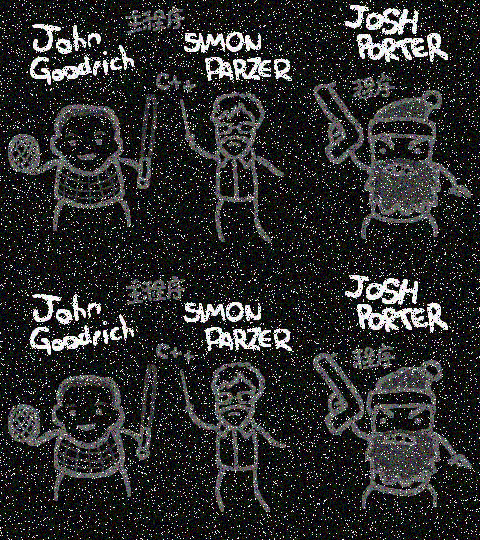 John
Goodrich
SIMON
PARZER
JOSH
PORTER
C++
程序
John
Goodrich
SIMON
PARZER
JOSH
PORTER
C++
程序